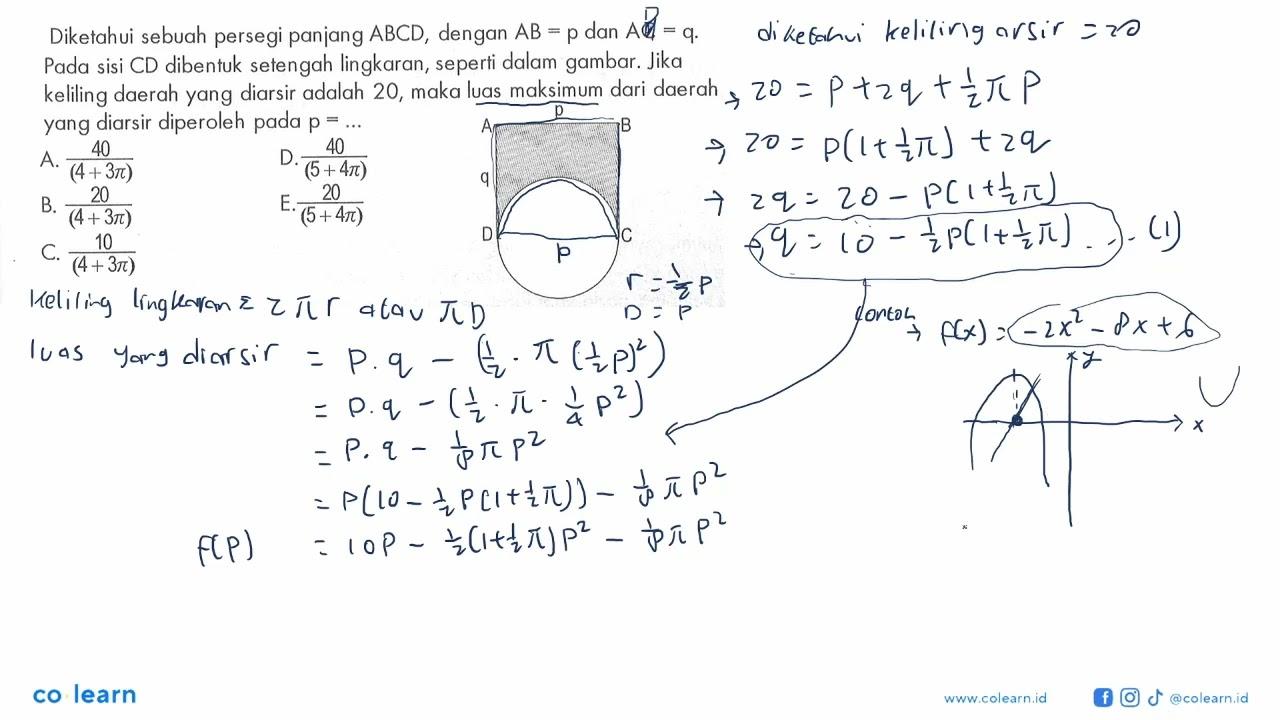 Diketahui sebuah persegi panjang ABCD, dengan AB = p dan AD = q.
Pada sisi CD dibentuk setengah lingkaran, seperti dalam gambar. Jika
keliling daerah yang diarsir adalah 20, maka luas maksimum dari daerah
yang diarsir diperoleh pada p = ...
A. 40/(4+3π)
B. 20/(4+3π)
C. 10/(4+3π)
D. 40/(5+4π)
E. 20/(5+4π)
A p B
q
D C
p
r = 1/2 p
D = p
diketahui keliling arsir = 20
→ 20 = p + 2q + 1/2 π p
→ 20 = p(1 + 1/2 π) + 2q
→ 2q = 20 - p(1 + 1/2 π)
→ q = 10 - 1/2 p(1 + 1/2 π) ... (1)
keliling lingkaran = 2πr atau πD
luas yang diarsir = p.q - (1/2 . π (1/2 p)²)
= p.q - (1/2 . π . 1/4 p²)
= p.q - 1/8 π p²
= p(10 - 1/2 p(1 + 1/2 π)) - 1/8 π p²
f(p) = 10p - 1/2 (1 + 1/2 π) p² - 1/8 π p²
contoh → f(x) = -2x² - 8x + 6
y
x
co learn
www.colearn.id
@colearn.id